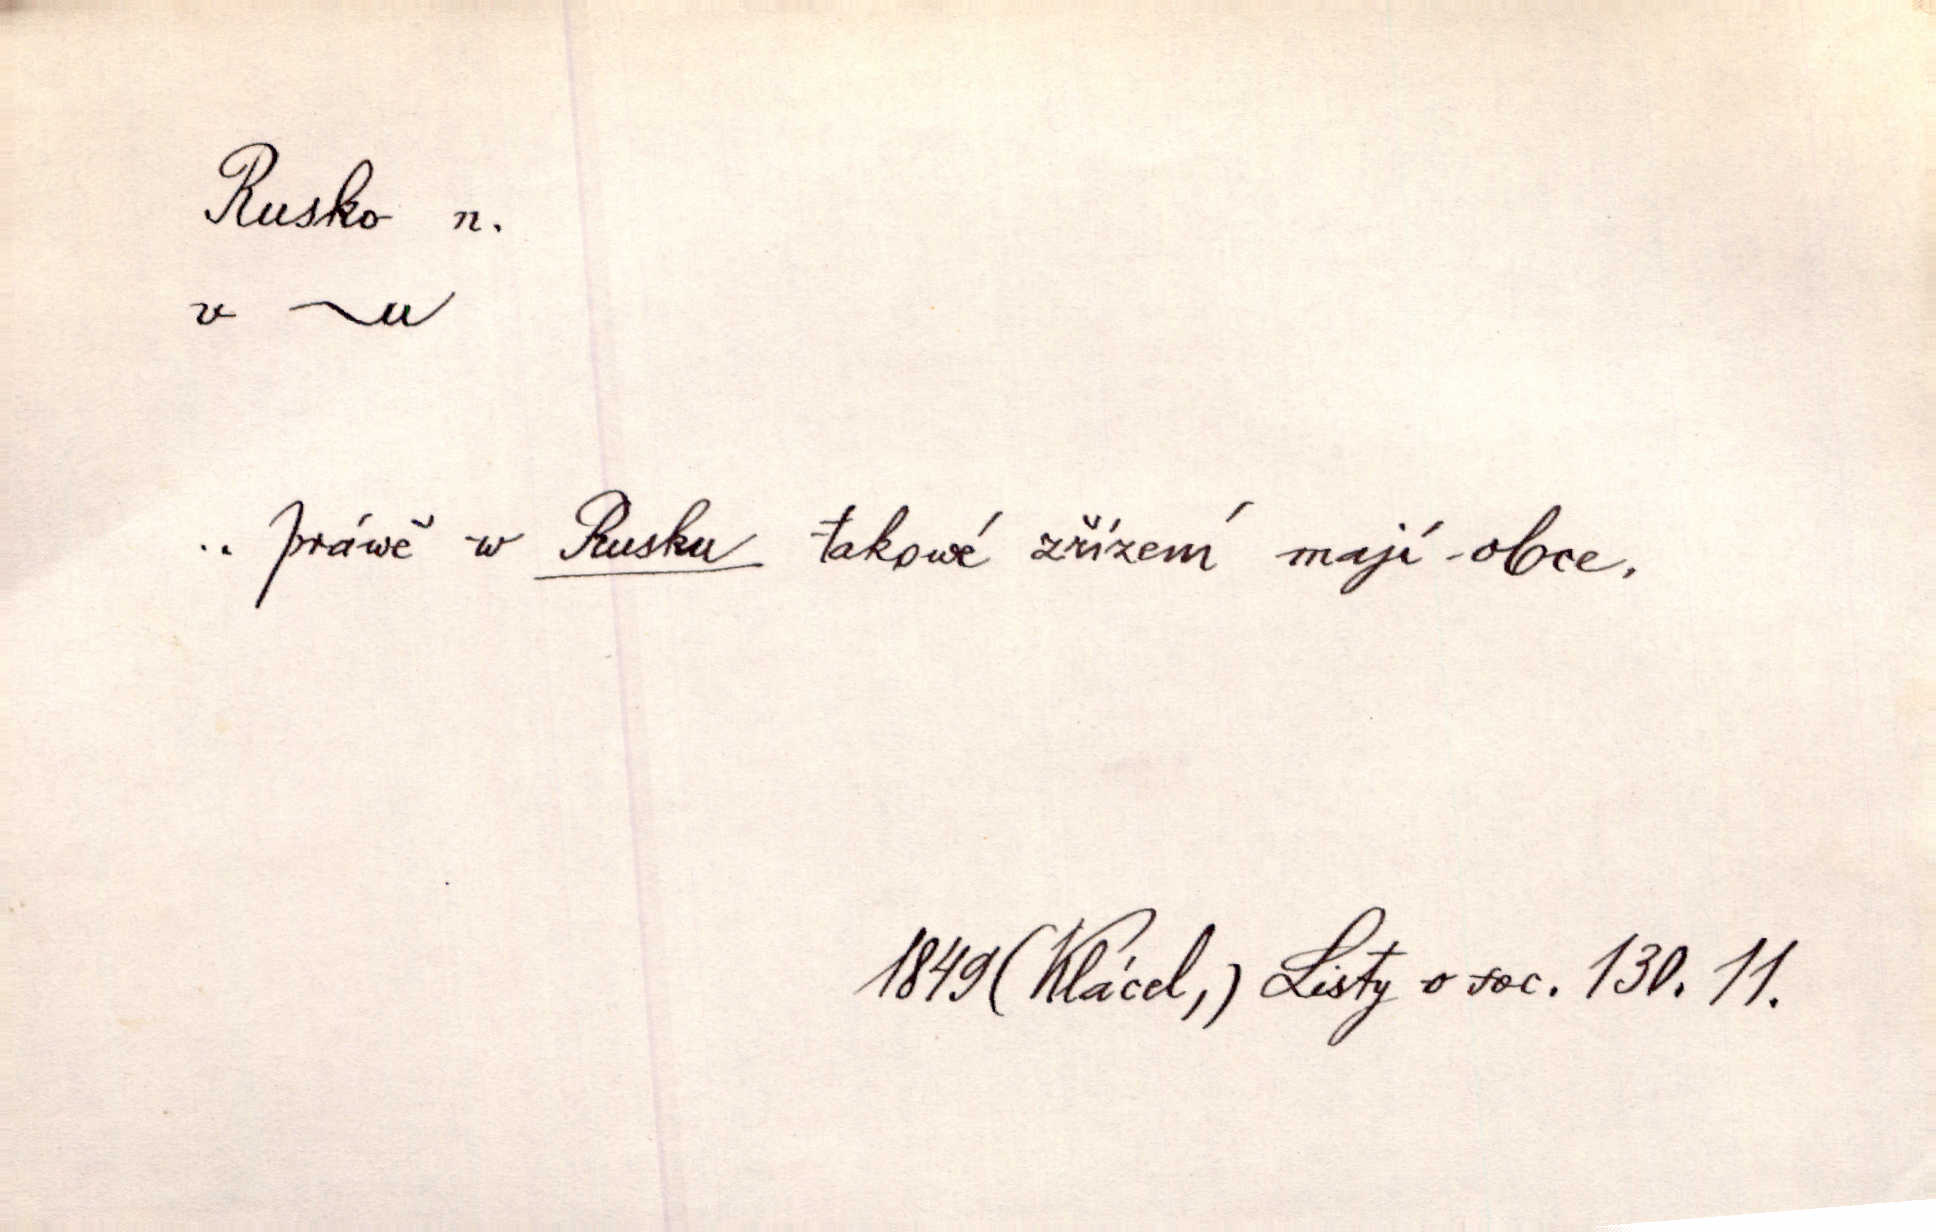 Rusko n.
v ~u
.. práwě w Rusku takowé zřízení mají obce.
1849 (Klácel,) Listy o soc. 130. 11.